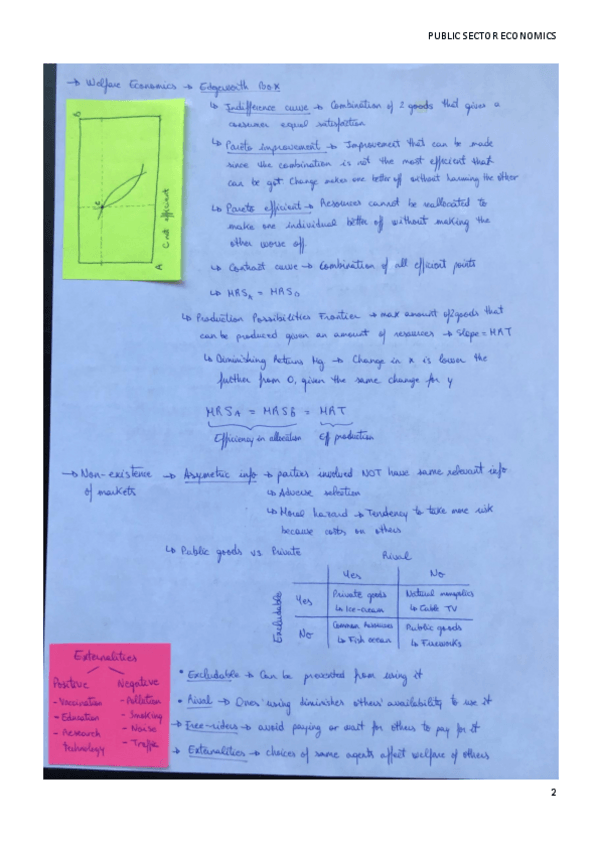 PUBLIC SECTOR ECONOMICS
→ Welfare Economics → Edgeworth Box
B
e
A
C not efficient
↳ Indifference curve → Combination of 2 goods that gives a
consumer equal satisfaction
↳ Pareto improvement → Improvement that can be made
since the combination is not the most efficient that
can be got. Change makes one better off without harming the other
↳ Pareto efficient → Resources cannot be reallocated to
make one individual better off without making the
other worse off.
↳ Contract curve → Combination of all efficient points
↳ MRS_A = MRS_B
↳ Production Possibilities Frontier → max amount of 2 goods that
can be produced given an amount of resources → Slope = MRT
↳ Diminishing Returns Mg → Change in x is lower the
further from 0, given the same change for y
MRS_A = MRS_B = MRT
Efficiency in allocation Eff production
→ Non-existence of markets → Asymetric info → parties involved NOT have same relevant info
↳ Adverse selection
↳ Moral hazard → Tendency to take more risk
because costs on others
↳ Public goods vs Private
Rival
Yes No
Excludable
Yes Private goods Natural monopolies
↳ Ice-cream ↳ Cable TV
No Common Resources Public goods
↳ Fish ocean ↳ Fireworks
Externalities
Positive Negative
- Vaccination - Pollution
- Education - Smoking
- Research - Noise
technology - Traffic
• Excludable → Can be prevented from using it
• Rival → Ones' using diminishes others' availability to use it
→ Free-riders → avoid paying or wait for others to pay for it
→ Externalities → choices of some agents affect welfare of others
2